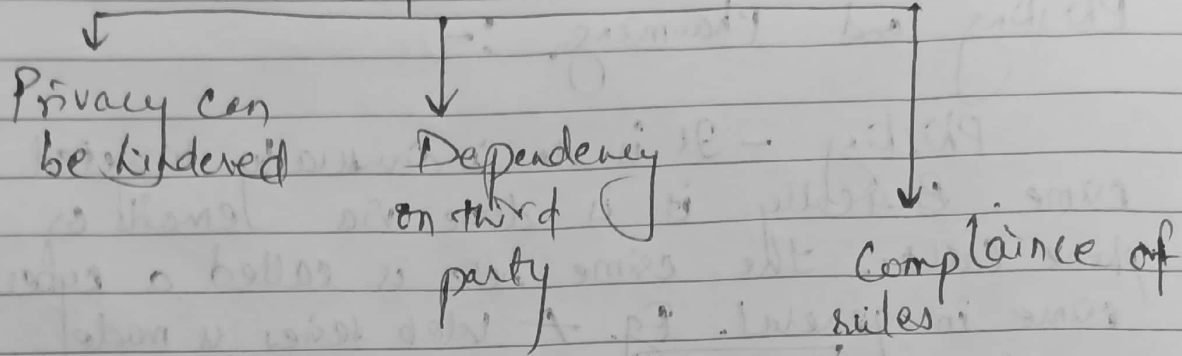 Privacy can
be hindered
Dependency
on third
party
Complaince of
rules.